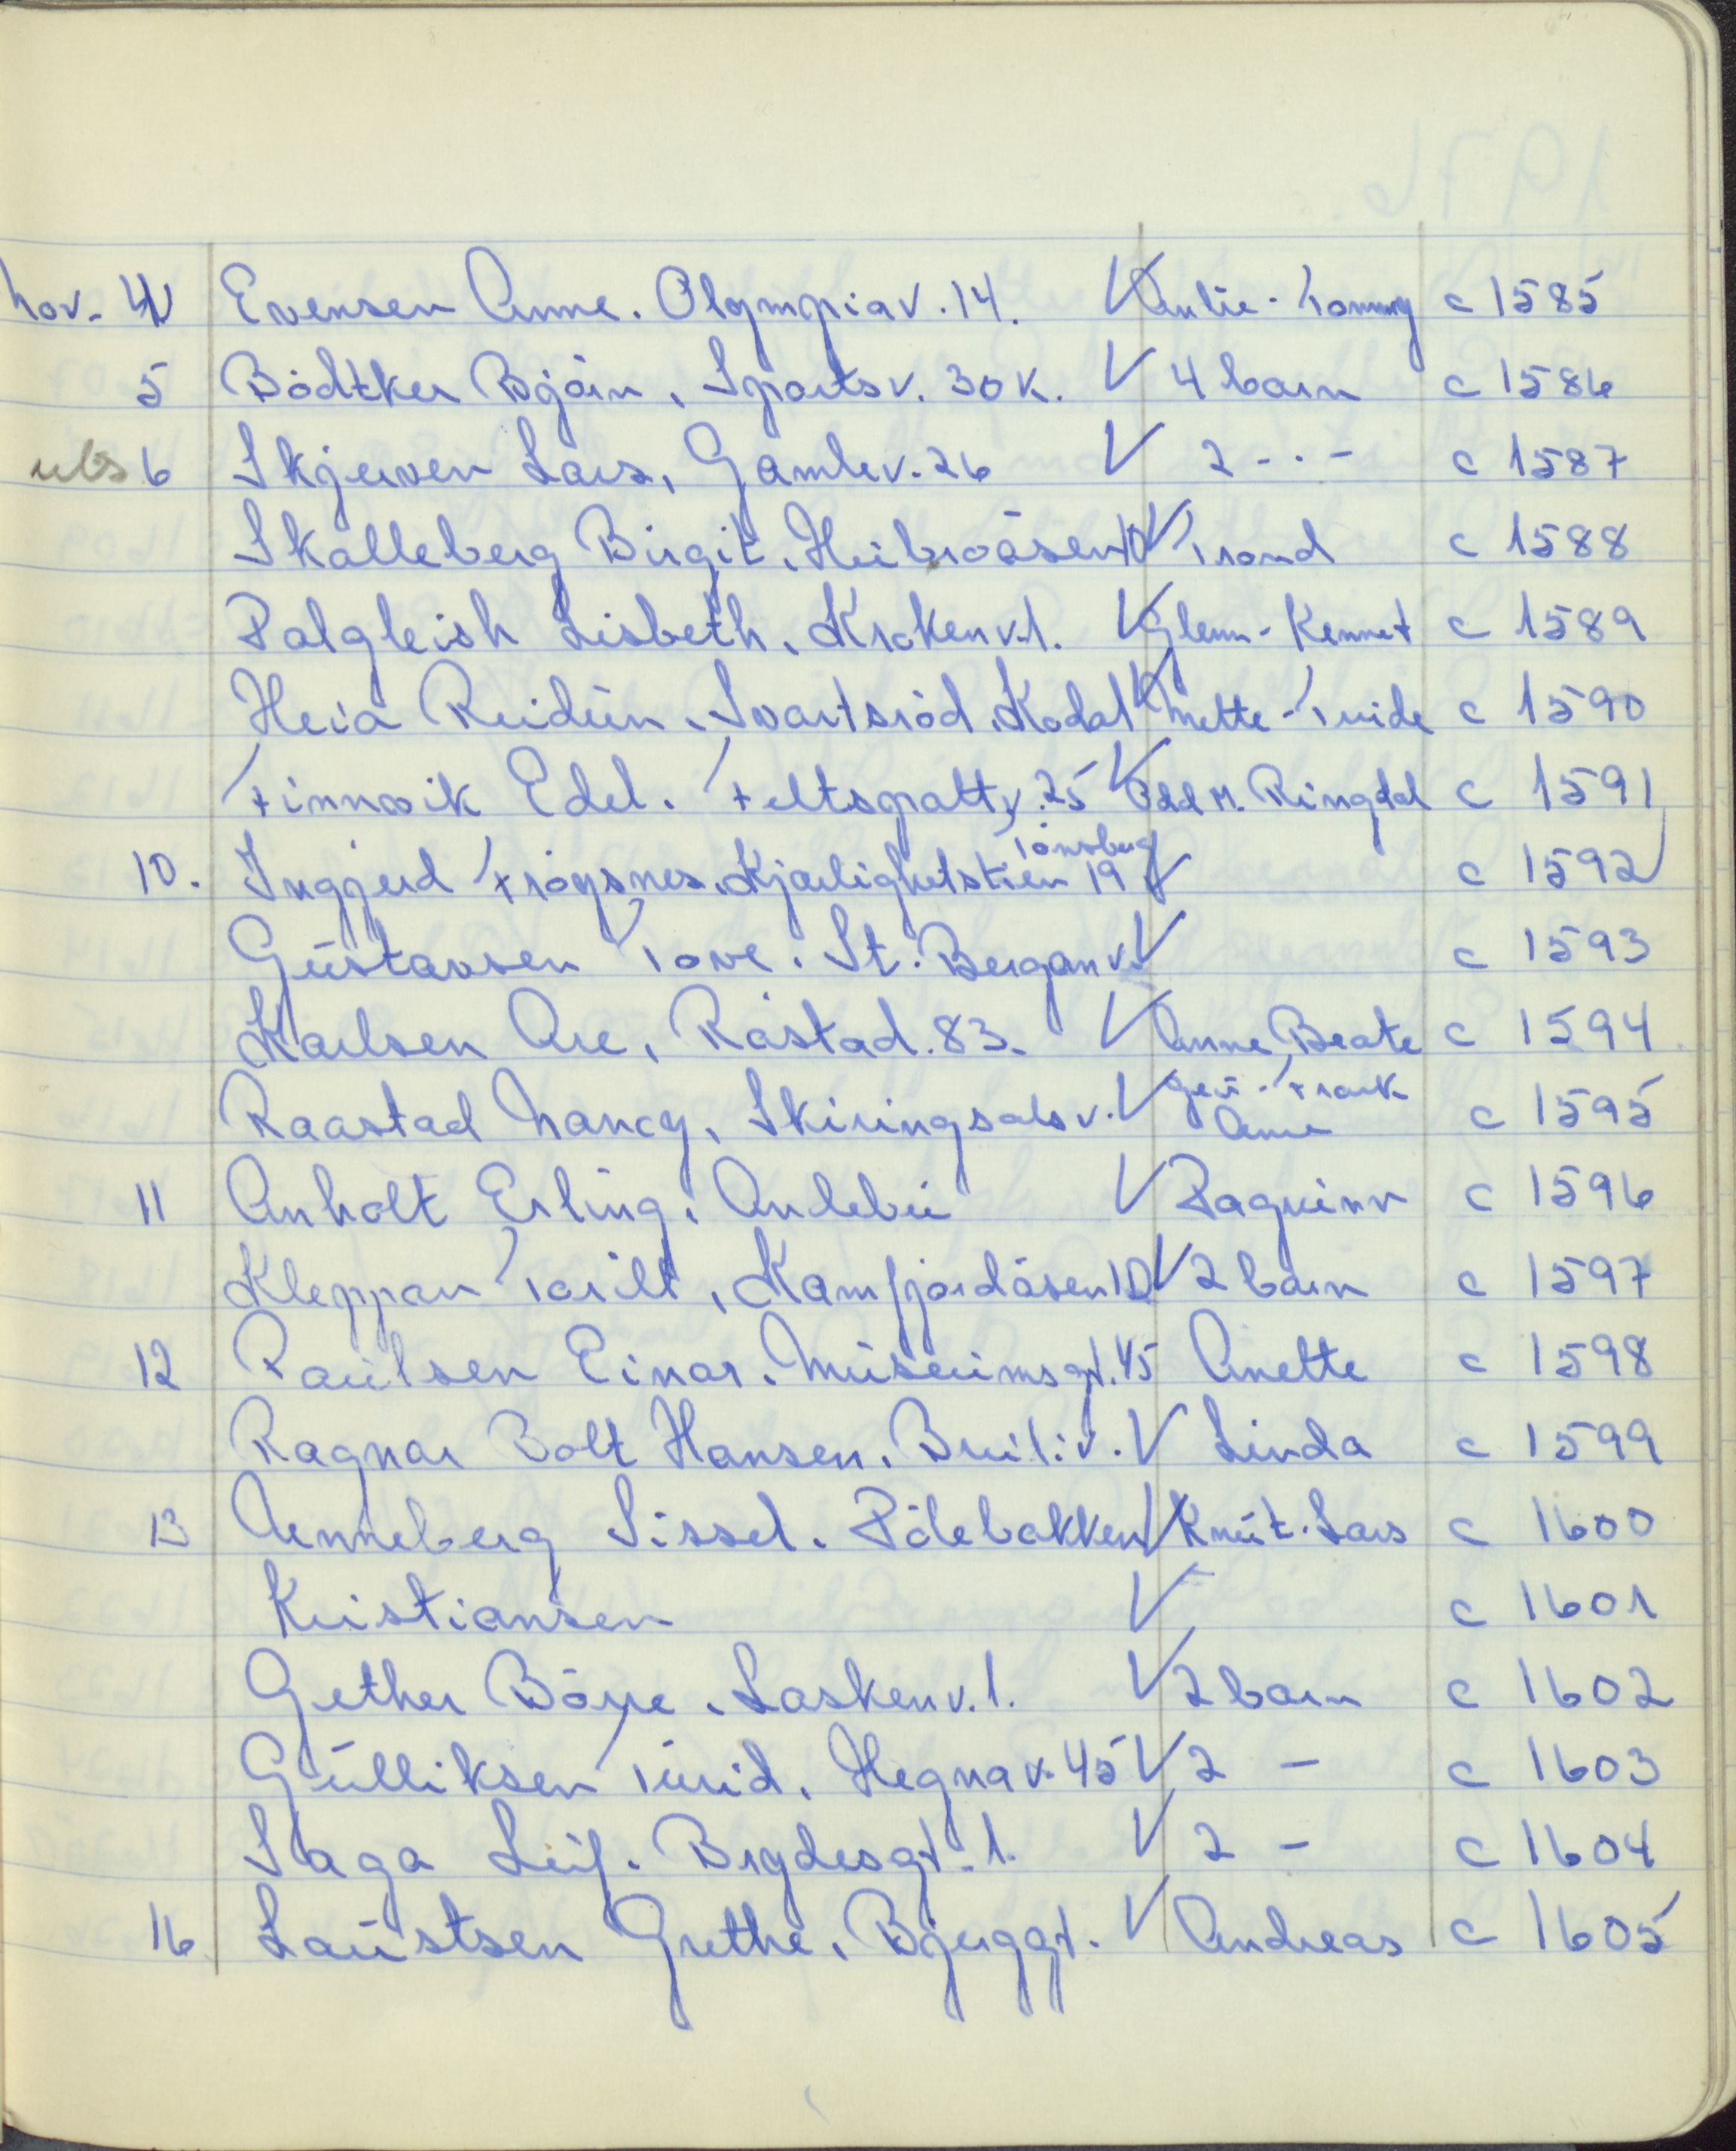 nov. 4 Evensen Anne. Olympiav. 14. V Tommy c 1585
5 Bödtker Bjørn, Sportsv. 30 K. V 4 barn c 1586
6 Skjerven Lars, Gamlev. 26 V 2 - . - c 1587
Skalleberg Birgit. Heibroåsen 10 V Trond c 1588
Dalgleish Lisbeth, Krokenv. 1. V Glenn - Kennet c 1589
Heia Reidun. Svartsrød, Kodal V Mette - Turide c 1590
Finnvik Edel. Feltspattv. 25 V Odd M. Ringdal c 1591
Tønsberg
10. Inggjerd Frøysnes. Kjærlighetstien 19 V c 1592
Gustavsen Tove. St. Berganv. V c 1593
Karlsen Are, Råstad. 83. V Anne Beate c 1594
Geir - Frank
Raastad Nancy, Skiringsalsv. V Anne c 1595
11 Anholt Erling. Andebu V Dagfinn c 1596
Kleppan Torill, Kamfjordåsen 10 V 2 barn c 1597
12 Paulsen Einar. Museumsgt. 45 Anette c 1598
Ragnar Bolt Hansen. V Linda c 1599
13 Anneberg Sissel. Pölebakken V Knut. Lars c 1600
Kristiansen V c 1601
Gether Börre. Laskenv. 1. V 2 barn c 1602
Gulliksen Turid. Hegnav. 45 V 2 - c 1603
Saga Leif. Brydesgt. 1. V 2 - c 1604
16 Laustsen Grethe. Bjerggt. V Andreas c 1605